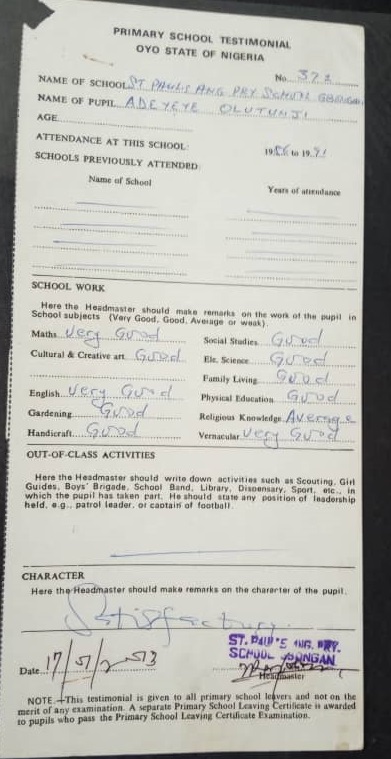 PRIMARY SCHOOL TESTIMONIAL
OYO STATE OF NIGERIA
No. 372
NAME OF SCHOOL ST PAULS ANG PRY SCHOOL GBONGAN
NAME OF PUPIL ADEYEYE OLUTUNJI
AGE
ATTENDANCE AT THIS SCHOOL: 1986 to 1991
SCHOOLS PREVIOUSLY ATTENDED:
Name of School Years of attendance
SCHOOL WORK
Here the Headmaster should make remarks on the work of the pupil in
School subjects (Very Good, Good, Average or weak).
Maths Very Good Social Studies Good
Cultural & Creative art Good Ele. Science Good
Family Living Good
English Very Good Physical Education Good
Gardening Good Religious Knowledge Average
Handicraft Good Vernacular Very Good
OUT-OF-CLASS ACTIVITIES
Here the Headmaster should write down activities such as Scouting, Girl
Guides, Boys' Brigade, School Band, Library, Dispensary, Sport, etc., in
which the pupil has taken part. He should state any position of leadership
held, e.g., patrol leader, or captain of football.
CHARACTER
Here the Headmaster should make remarks on the charater of the pupil.
Satisfactory.
ST. PAUL'S ANG. PRY.
SCHOOL GBONGAN
Date 17/
Headmaster
NOTE.—This testimonial is given to all primary school leavers and not on the
merit of any examination. A separate Primary School Leaving Certificate is awarded
to pupils who pass the Primary School Leaving Certificate Examination.